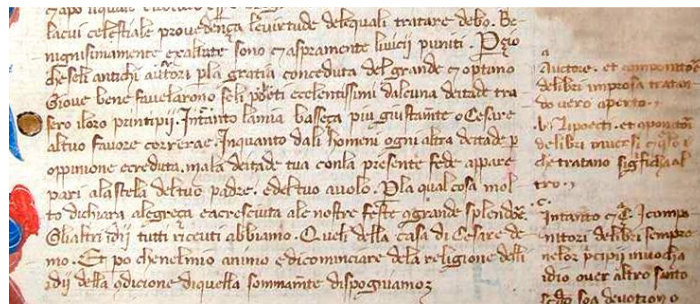 lacui celestiale provedença leuirtude delequali tratare debo. Be
nignisimamente exaltate sono & aspramente liuicii puniti. Perio
che seli antichi autori pla gratia conceduta del grande & optimo
Gioue bene fauelarono seli poeti ecelentissimi dalcuna deitade tra
sero iloro principii. Intanto lamia basseça piu giustamte o Cesare
altuo fauore correrae. Inquanto dali homeni ogni altra deitade p
oppinione ecreduta. mala deitade tua conla presente fede appare
pari alastela deltuo padre. edeltuo auolo. Pla qual cosa mol
to dichiara alegreça eacresciuta ale nostre feste grande splendore.
Glialtri idii tutti riceuti abbiamo. Queli della casa di Cesare de
mo. Et po chenelmio animo e dicominciare dela religione delli
idii della diquella sommamte dispogniamoz
a
Auctore. et
delibri improsa tratan
do uero aperto.
b. Ipoecti. et
delibri diuersi
che tratano al
tro.
c.
Intanto &c. Icompo
nitori delibri sempre
neloz pcipii inuocha
idio ouer altro santo